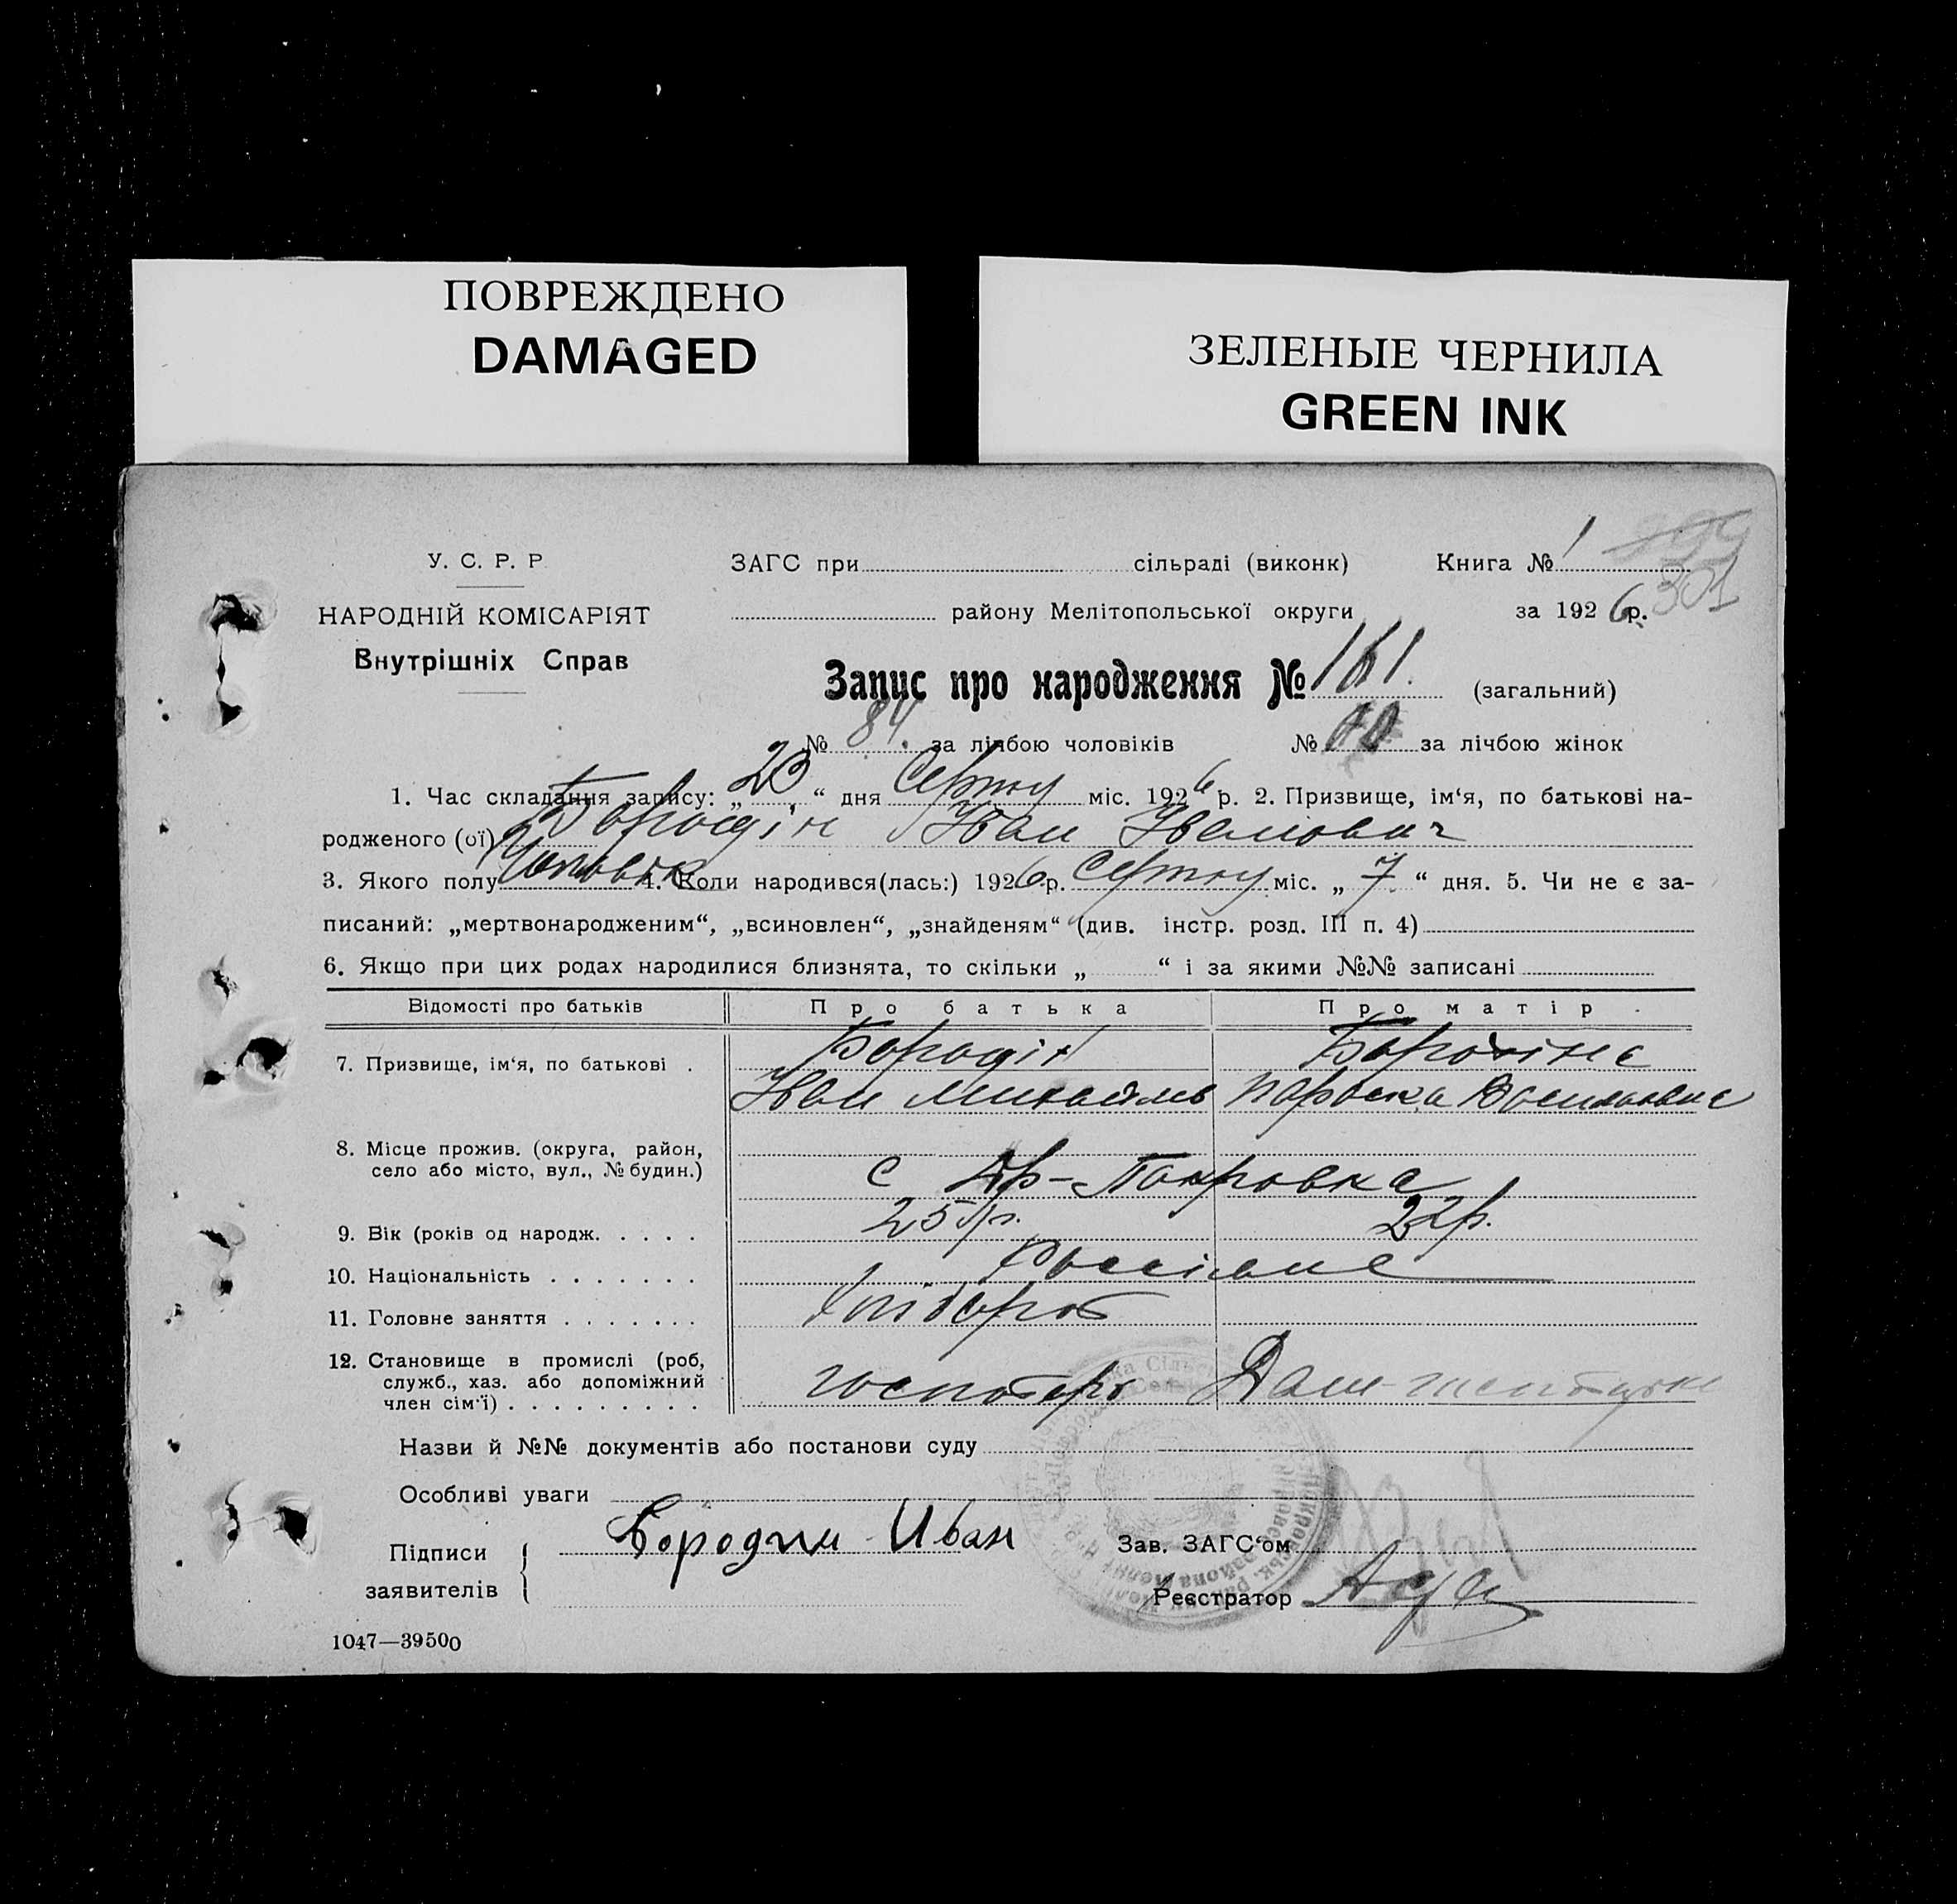 ПОВРЕЖДЕНО
DAMAGED
ЗЕЛЕНЫЕ ЧЕРНИЛА
GREEN INK
У. С. Р. Р
НАРОДНІЙ КОМІСАРІЯТ
Внутрішніх Справ
ЗАГС при сільраді (виконк)
Книга № 1
301
району Мелітопольської округи
за 1926 р.
Запис про народження № 161. (загальний)
№ 84. за лічбою чоловіків № за лічбою жінок
1. Час складання запису: „23“ дня Серпну міс. 1926 р. 2. Призвище, ім‘я, по батькові на-
родженого (ої) Бородін Іван Іванович
3. Якого полу Чоловік 4. Коли народився(лась:) 1926 р. Серпну міс. „7“ дня. 5. Чи не є за-
писаний: „мертвонародженим“, „всиновлен“, „знайденям“ (див. інстр. розд. III п. 4)
6. Якщо при цих родах народилися близнята, то скільки „ “ і за якими №№ записані
Відомості про батьків Про батька Про матір
7. Призвище, ім‘я, по батькові . Бородін Бородіна
Іван Михайлов Параска Василивна
8. Місце прожив. (округа, район,
село або місто, вул., № будин.) с Ар-Покровка
9. Вік (років од народж. . . . . 25 р. 22 р.
10. Національність . . . . . . . Россіяне
11. Головне заняття . . . . . . . Хлібороб
12. Становище в промислі (роб,
служб., хаз. або допоміжний
член сім‘ї) . . . . . . . . . господарь Дом-господарка
Назви й №№ документів або постанови суду
Особливі уваги
Підписи
заявителів
Бородин Иван
Зав. ЗАГС‘ом
Реєстратор
1047—39500